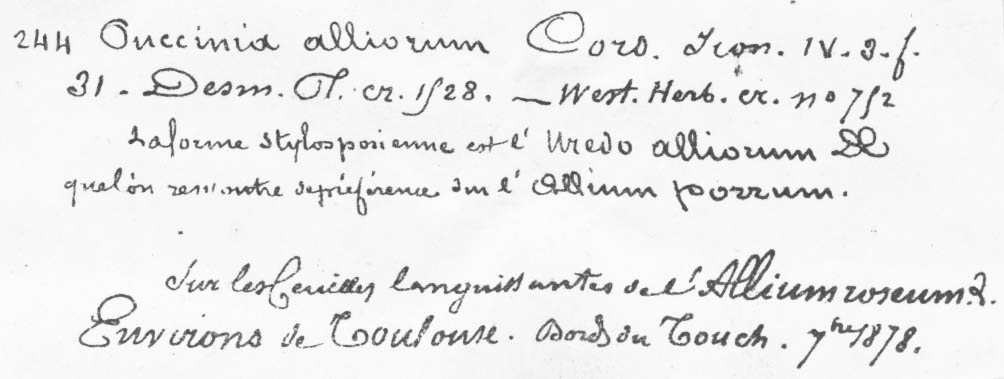 244 Puccinia alliorum Cord. Icon. IV. 3. f.
31. Desm. Pl. cr. 1528. — West. Herb. cr. no 752
La forme stylosporienne est l'Uredo alliorum DC
que l'on rencontre de préférence sur l'Allium porrum.
Sur les feuilles languissantes de l'Allium roseum L.
Environs de Toulouse. Bords du Touch. 7bre 1878.